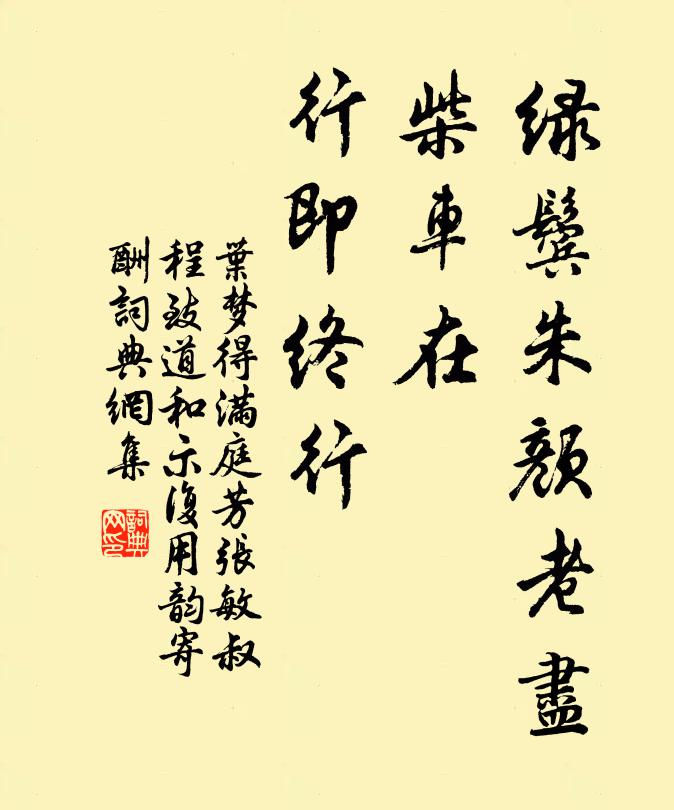 绿鬓朱颜老盡
柴車在
行即终行
葉梦得滿庭芳張敏叔
程致道和示復用韵寄
酬詞典網集
詞典
网印